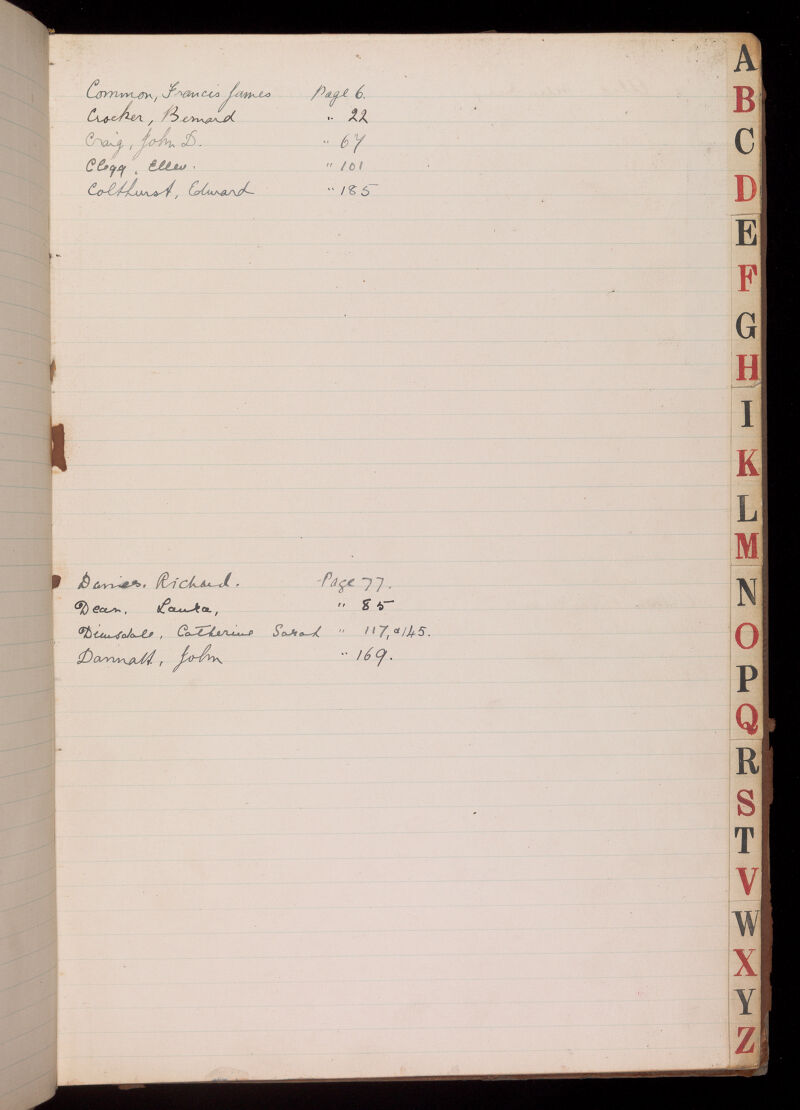 Common, Francis James Page 6.
Crocker, Bernard " 22
Craig, John D. " 67
Clegg, Ellen. " 101
Colthurst, Edward " 185
Davies, Richard. Page 77.
Dean, Laura, " 85
Dimsdale, Catherine Sarah " 117, & 145.
Dannatt, John " 169.
A
B
C
D
E
F
G
H
I
K
L
M
N
O
P
Q
R
S
T
V
W
X
Y
Z